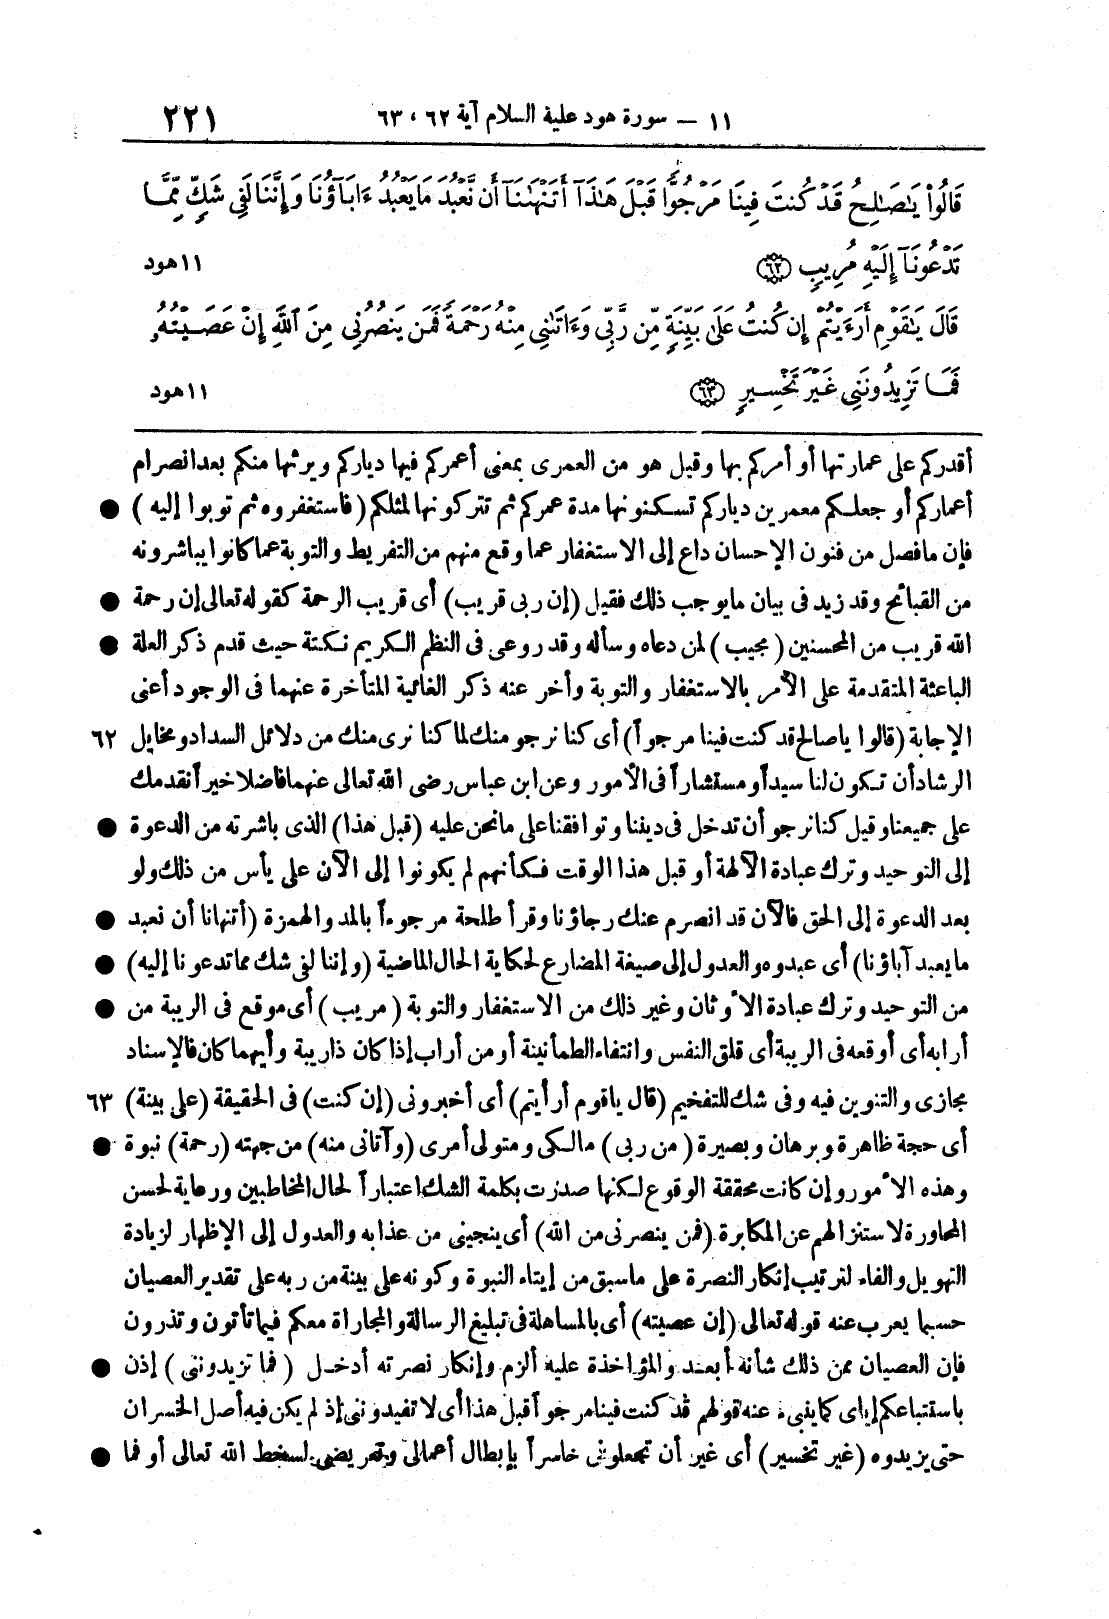 ١١ – سورة هود علية السلام آية ٦٢ ، ٦٣ ٢٢١
قَالُوا۟ يَـٰصَـٰلِحُ قَدْ كُنتَ فِينَا مَرْجُوًّا قَبْلَ هَـٰذَآ أَتَنْهَىٰنَآ أَن نَّعْبُدَ مَا يَعْبُدُ ءَابَآؤُنَا وَإِنَّنَا لَفِى شَكٍّ مِّمَّا
تَدْعُونَآ إِلَيْهِ مُرِيبٍ ﴿٦٢﴾ ١١ هود
قَالَ يَـٰقَوْمِ أَرَءَيْتُمْ إِن كُنتُ عَلَىٰ بَيِّنَةٍ مِّن رَّبِّى وَءَاتَىٰنِى مِنْهُ رَحْمَةً فَمَن يَنصُرُنِى مِنَ ٱللَّهِ إِنْ عَصَيْتُهُۥ
فَمَا تَزِيدُونَنِى غَيْرَ تَخْسِيرٍ ﴿٦٣﴾ ١١ هود
أقدركم على عمارتها أو أمركم بها وقيل هو من العمرى بمعنى أعمركم فيها دياركم ويرثها منكم بعد انصرام
أعماركم أو جعلكم معمرين دياركم تسكنونها مدة عمركم ثم تتركونها لمثلكم ( فاستغفروه ثم توبوا إليه ) ●
فإن مافصل من فنون الإحسان داع إلى الاستغفار عما وقع منهم من التفريط والتوبة عما كانوا يباشرونه
من القبائح وقد زيد فى بيان مايوجب ذلك فقيل (إن ربى قريب) أى قريب الرحمة كقوله تعالى إن رحمة ●
الله قريب من المحسنين ( مجيب ) لمن دعاه وسأله وقد روعى فى النظم الكريم نكتة حيث قدم ذكر العلة ●
الباعثة المتقدمة على الأمر بالاستغفار والتوبة وأخر عنه ذكر الغائية المتأخرة عنهما فى الوجود أعنى
الإجابة (قالوا ياصالح قد كنت فينا مرجواً) أى كنا نرجو منك لما كنا نرى منك من دلائل السداد ومخايل ٦٢
الرشاد أن تكون لنا سيداً ومستشاراً فى الأمور وعن ابن عباس رضى الله تعالى عنهما فاضلا خيراً نقدمك
على جميعنا وقيل كنا نرجو أن تدخل فى ديننا وتوافقنا على مانحن عليه (قبل هذا) الذى باشرته من الدعوة ●
إلى التوحيد وترك عبادة الآلهة أو قبل هذا الوقت فكأنهم لم يكونوا إلى الآن على يأس من ذلك ولو
بعد الدعوة إلى الحق فالآن قد انصرم عنك رجاؤنا وقرأ طلحة مرجوءاً بالمد والهمزة (أتنهانا أن نعبد ●
مايعبد آباؤنا) أى عبدوه والعدول إلى صيغة المضارع لحكاية الحال الماضية (وإننا لفى شك مما تدعونا إليه) ●
من التوحيد وترك عبادة الأوثان وغير ذلك من الاستغفار والتوبة ( مريب ) أى موقع فى الريبة من ●
أرابه أى أوقعه فى الريبة أى قلق النفس وانتفاء الطمأنينة أو من أراب إذا كان ذاريبة وأيهما كان فالإسناد
مجازى والتنوين فيه وفى شك للتفخيم (قال ياقوم أرأيتم) أى أخبرونى (إن كنت) فى الحقيقة (على بينة) ٦٣
أى حجة ظاهرة وبرهان وبصيرة ( من ربى ) مالكى ومتولى أمرى (وآتانى منه) من جهته (رحمة) نبوة ●
وهذه الأمور وإن كانت محققة الوقوع لكنها صدرت بكلمة الشك اعتباراً لحال المخاطبين ورعاية لحسن
المحاورة لاستنزالهم عن المكابرة (فمن ينصرنى من الله) أى ينجينى من عذابه والعدول إلى الإظهار لزيادة
التهويل والفاء لترتيب إنكار النصرة على ماسبق من إيتاء النبوة وكونه على بينة من ربه على تقدير العصيان
حسبما يعرب عنه قوله تعالى (إن عصيته) أى بالمساهلة فى تبليغ الرسالة والمجاراة معكم فيما تأتون وتذرون
فإن العصيان ممن ذلك شأنه أبعد والمؤاخذة عليه ألزم وإنكار نصرته أدخل ( فما تزيدوننى ) إذن ●
باستتباعكم إياى كما ينبىء عنه قولهم قد كنت فينا مرجواً قبل هذا أى لاتفيدوننى إذ لم يكن فيه أصل الخسران
حتى يزيدوه (غير تخسير) أى غير أن تجعلونى خاسراً بإبطال أعمالى وتعريضى لسخط الله تعالى أو فما ●